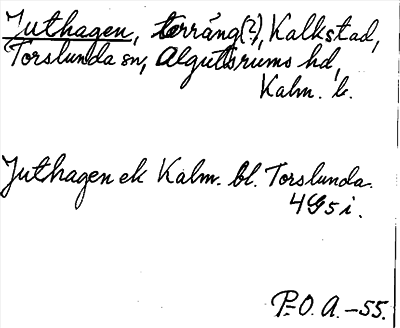 Juthagen, terräng(?), Kalkstad,
Torslunda sn, Algutsrums hd,
Kalm. l.
Juthagen ek Kalm. bl. Torslunda.
4G5i.
P.-O. A. -55.